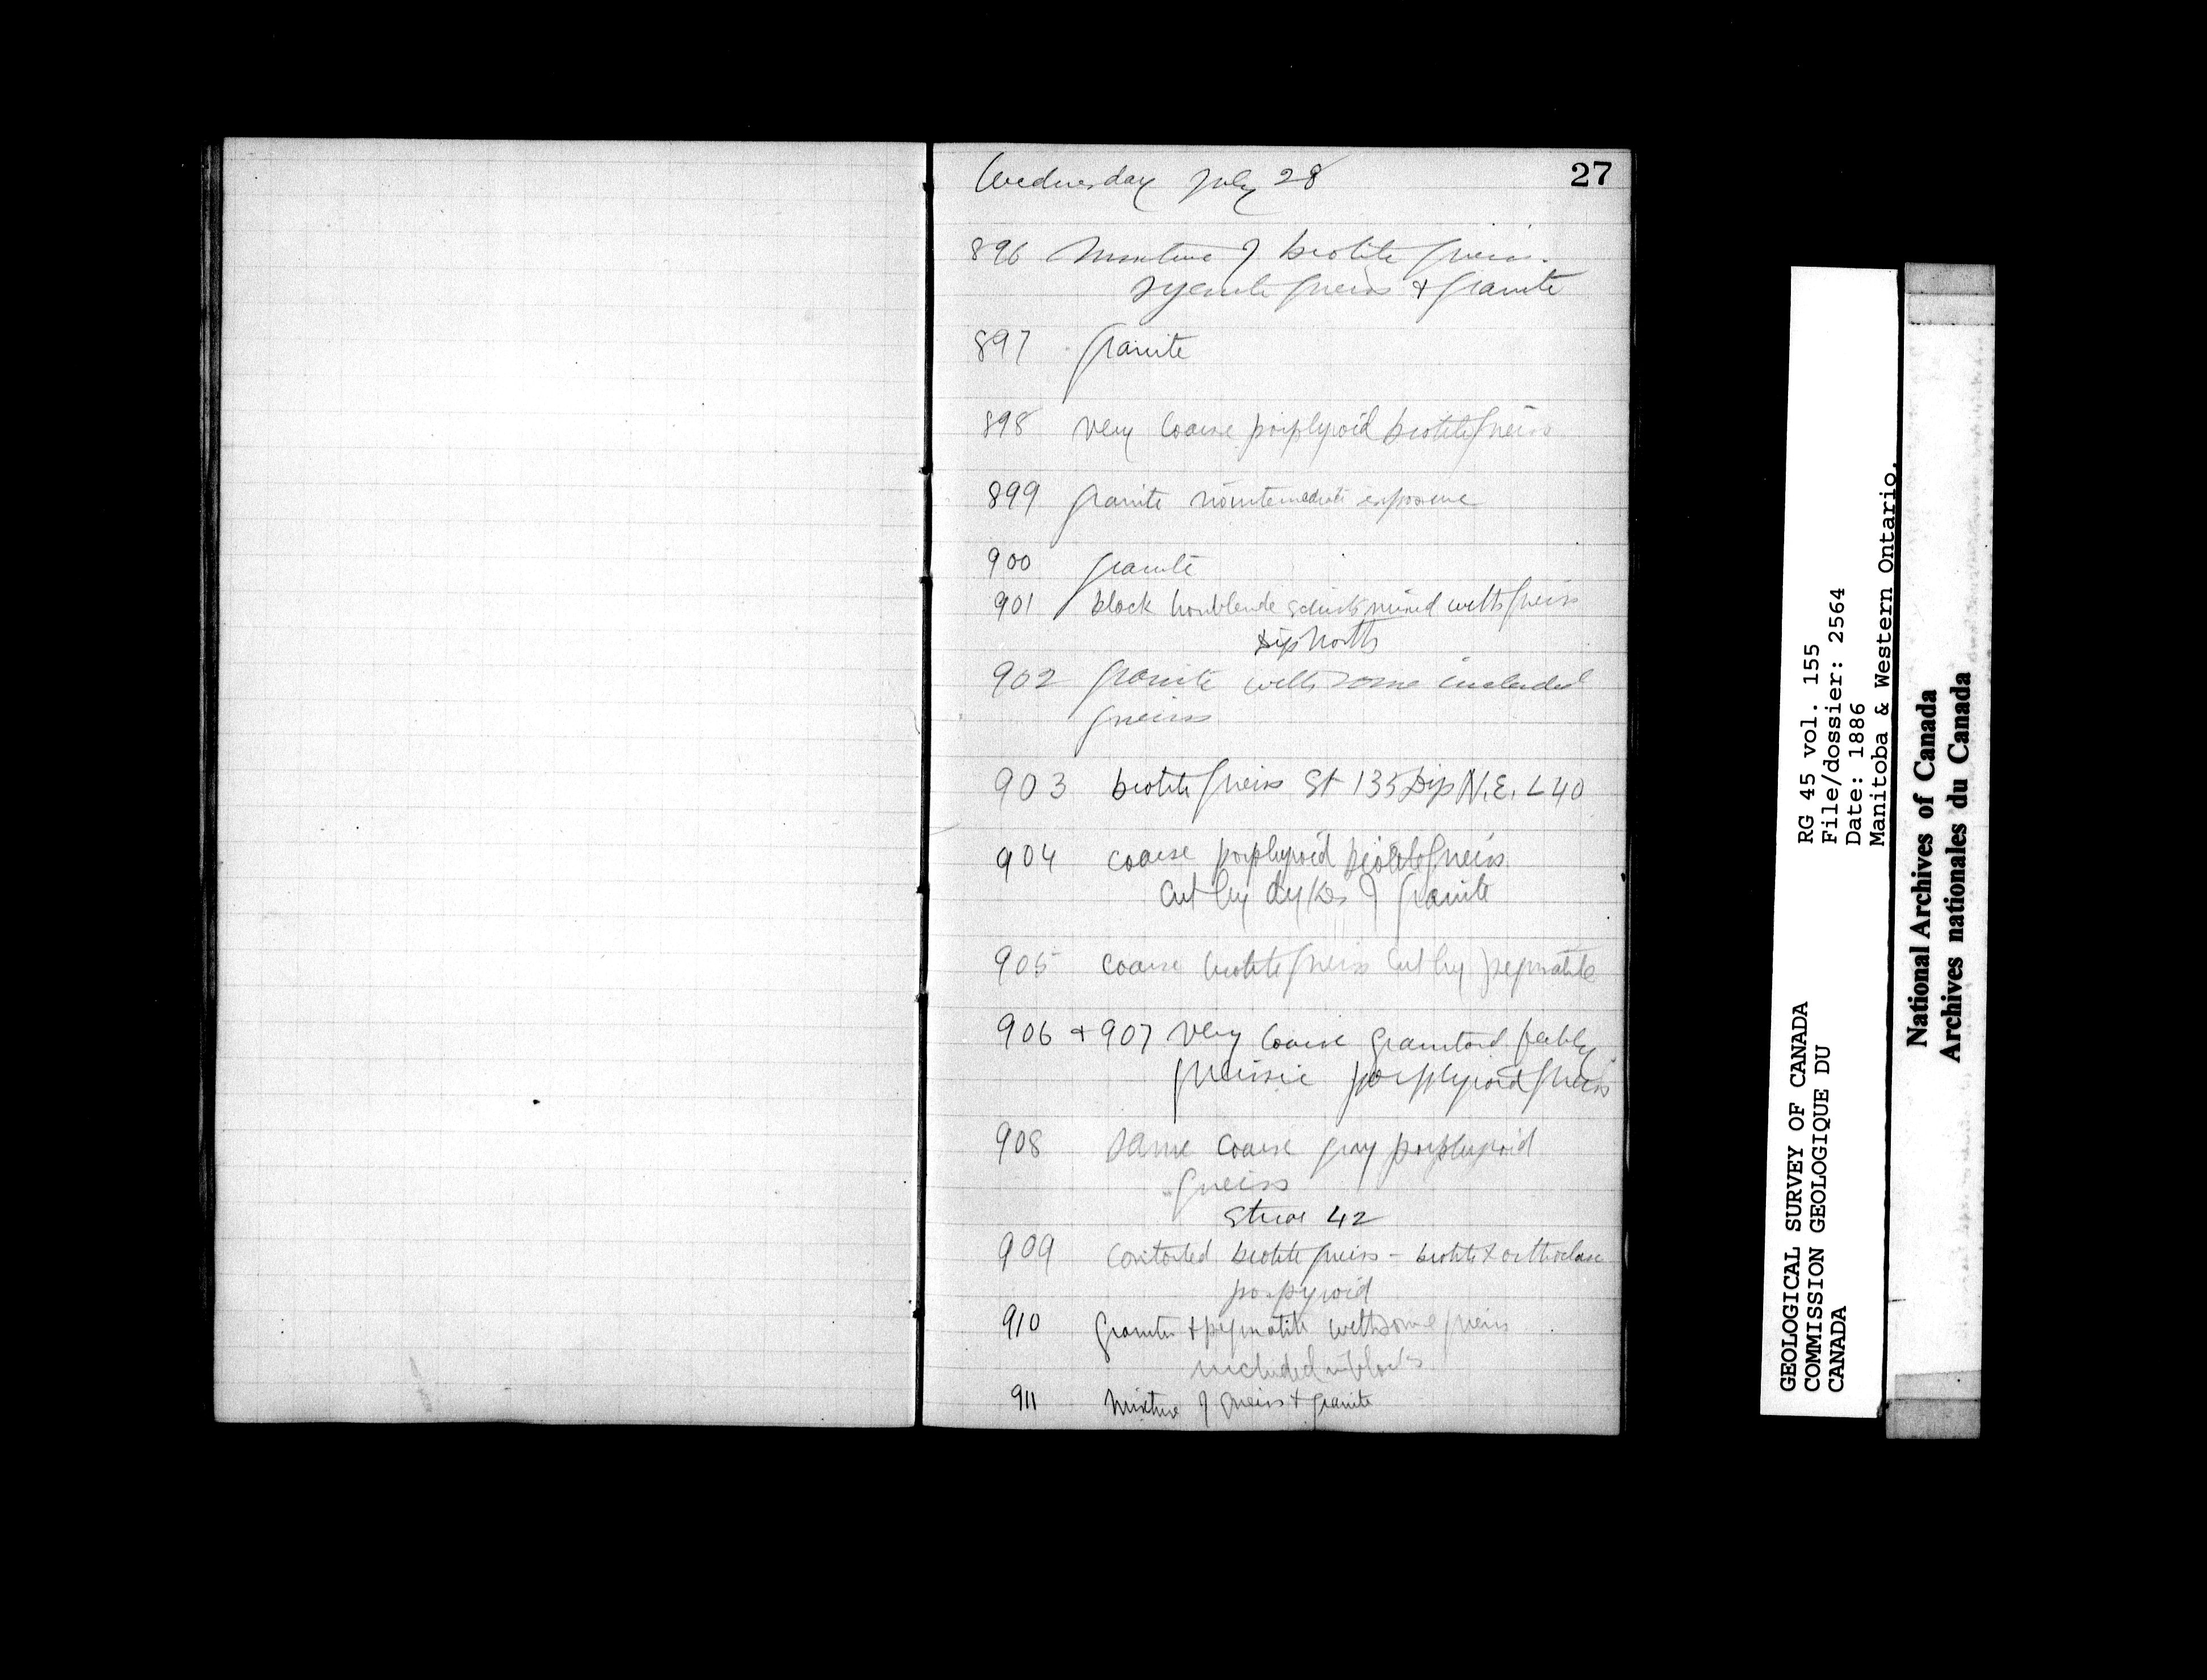 27
Wednesday July 28
896 Mixture of biotite gneiss.
syenite gneiss & granite
897 granite
898 very coarse porphyroid biotite gneiss
899 granite no intermediate exposure
900 granite
901 black hornblende schists mixed with gneiss
dip North
902 granite with some included
gneiss
903 biotite gneiss St 135 Dip N.E. L 40
904 coarse porphyroid biotite gneiss
cut by dykes of granite
905 coarse biotite gneiss cut by pegmatite
906 & 907 very coarse granitoid feebly
gneissic porphyroid gneiss
908 same coarse gray porphyroid
gneiss
Striae 42
909 contorted biotite gneiss - biotite & orthoclase
porpyroid
910 granite & pegmatite with some gneiss
included in blocks
911 mixture of gneiss & granite
GEOLOGICAL SURVEY OF CANADA
COMMISSION GEOLOGIQUE DU
CANADA
RG 45 vol. 155
File/dossier: 2564
Date: 1886
Manitoba & Western Ontario.
National Archives of Canada
Archives nationales du Canada